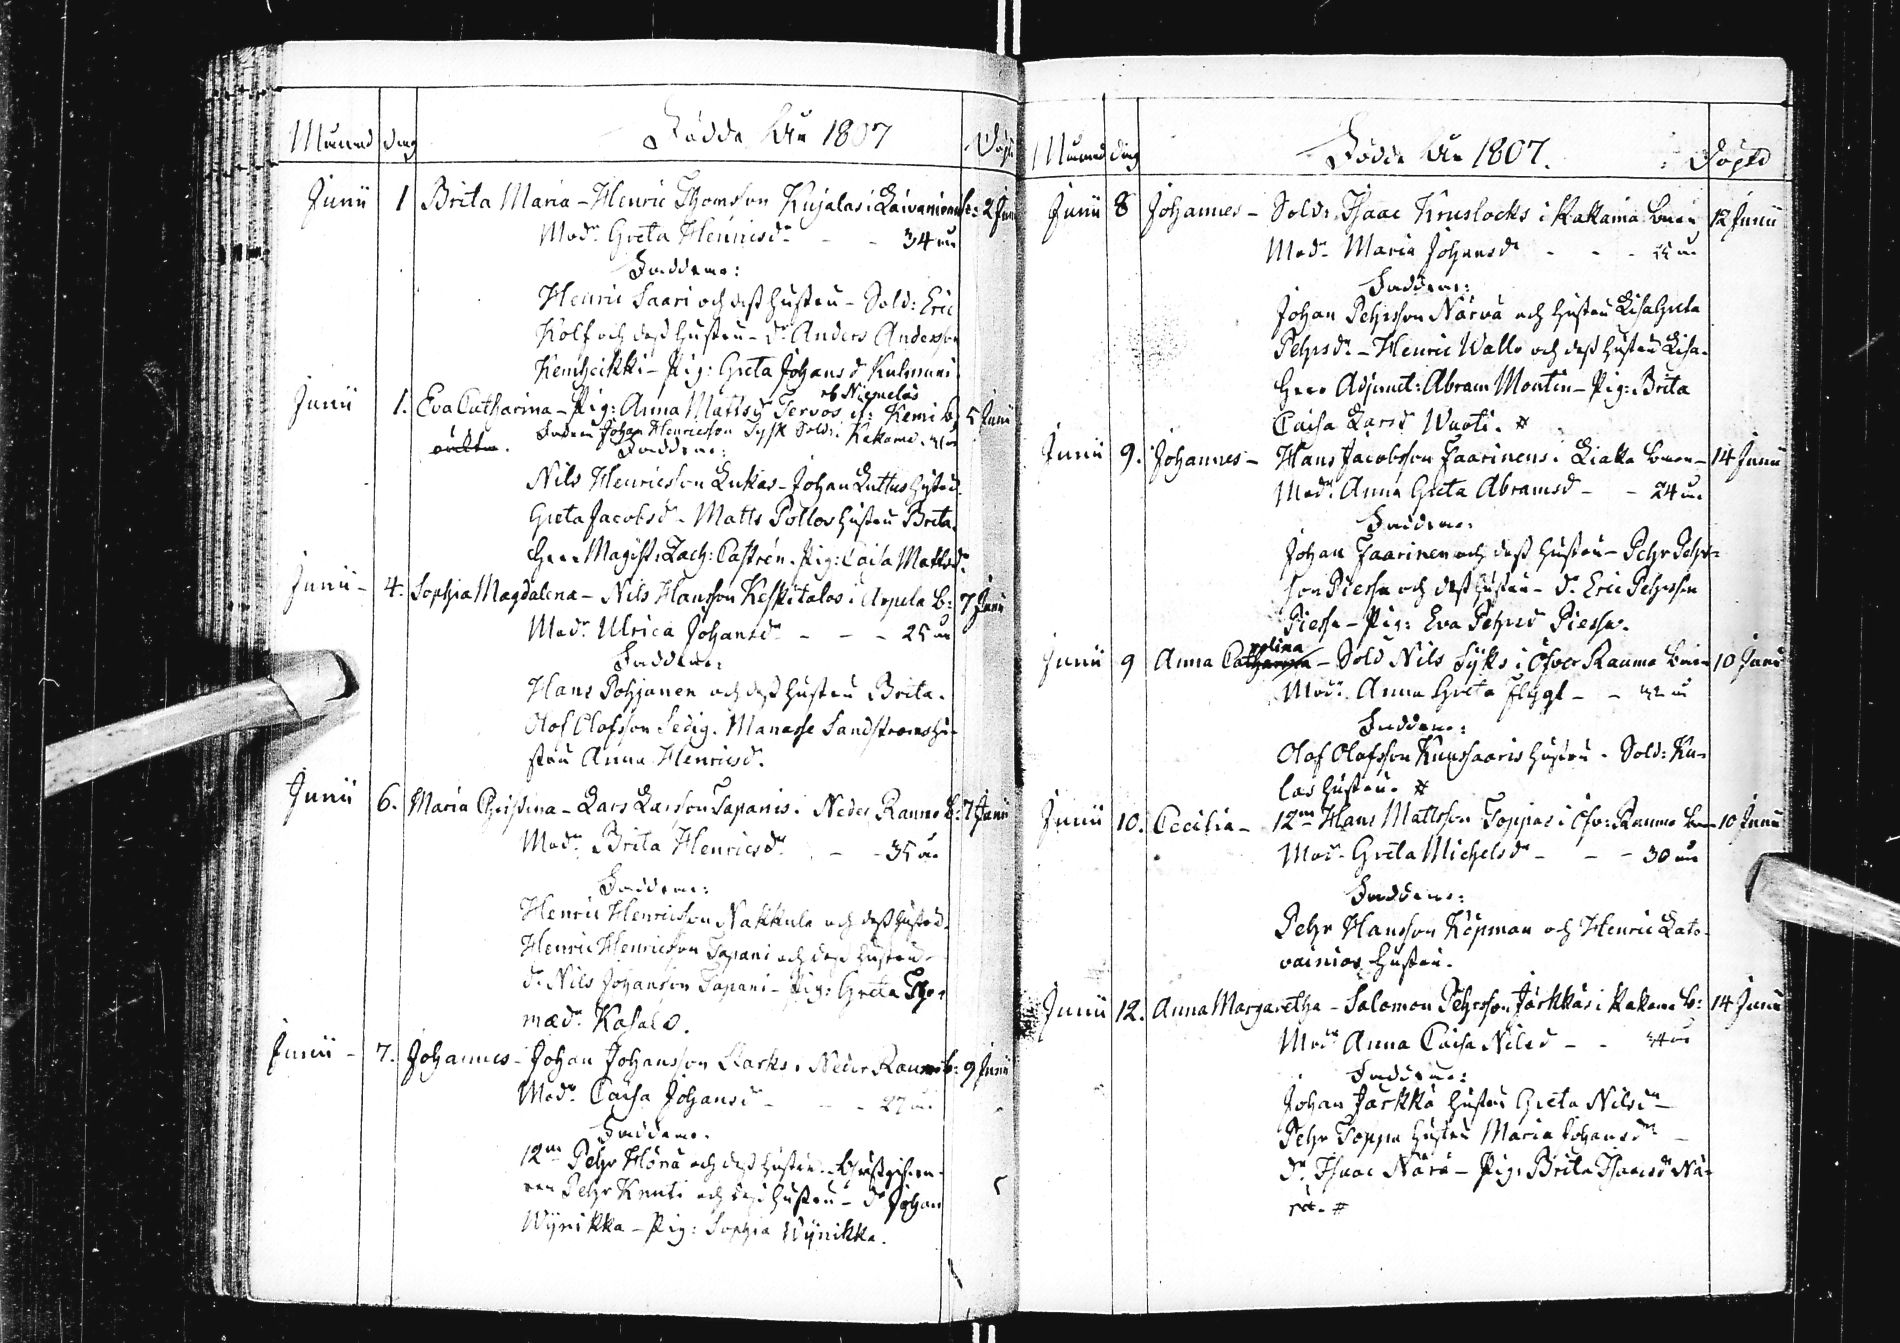 Månad dag Födde År 1807 Döpte
Junii 1 Brita Maria - Henric Thomson Kujalas i Laivaniemi b: 2 Junii
Modr Greta Henricsdr - - 34 år
Faddrar:
Henric Saari och dess hustru - Sold: Eric
Kolf och dess hustru - dr Anders Andersson
Kemheikki - Pig: Greta Johansd Kulmuni
Junii 1. Eva Catharina - Pig: Anna Mattsd Tervos if: Kemi b: 5 Junii
rb Niemelas
oäkta. Fadren Johan Henricsson Sysk Sold: i Kakama
Faddrar:
Nils Henricsson Lukas - Johan Luttus hustru
Greta Jacobsd - Matts Pollos hustru Brita.
Herr Magist: Zach: Castrén. Pig: Caisa Mattsdr
Junii - 4. Sophia Magdalena - Nils Hansson Keskitalos i Arpela b: 7 Junii
Modr Ulrica Johansdr - - - 25 år
Faddrar:
Hans Pohjanen och dess hustru Brita.
Olof Olofsson Sedig. Manasse Sandströms hu-
stru Anna Henricsd.
Junii 6. Maria Christina - Lars Larsson Tapanis i Neder Raumo b: 7 Junii
Modr Brita Henricsdr - - 35 år
Faddrar:
Henric Henricsson Nakkula och dess hustru.
Henric Henricsson Tapani och dess hustru
dr Nils Johansson Tapani - Pig: Greta Tho-
mædr Kasalo.
Junii - 7. Johannes - Johan Johansson Karks i Neder Raumo b: 9 Junii
Modr Caisa Johansd - - - 27 år
Faddrar.
12mn Pehr Hörä och dess hustru
Pehr Knuti och dess hustru - dr Johan
Wÿnikka - Pig: Sophia Wÿnikka.
Månad dag Födde År 1807. Döpte
Junii 8 Johannes - Sold: Isaac Kruslocks i Kakama bÿen 12 Junii
Modr Maria Johansdr - - - år
Faddrar:
Johan Pehrsson Närvä och hustru Lisa Greta
Pehrsdr - Henric Wallo och dess hustru Lisa.
Herr Adjunct: Abram Montin - Pig: Brita
Caisa Larsd Wuoti. #
Junii 9. Johannes - Hans Jacobsson Jaarinens i Liakka bÿen - 14 Junii
Modr Anna Greta Abramsd - - 24 år
Faddrar:
Johan Jaarinen och dess hustru - Pehr Pehrs-
son Piessa och dess hustru - dr Eric Pehrsson
Piessa - Pig: Eva Pehrsd Piessa.
Junii 9 Anna Catharina - Sold Nils Sÿks i Öfver Raumo bÿen 10 Junii
rolina
Modr Anna Greta Flygt - - år
Faddrar:
Olof Olofsson Kuussaaris hustru - Sold: Ku-
las hustru. #
Junii 10. Cecilia - 12mn Hans Mattsson Toppas i Öfv: Raumo b - 10 Junii
Modr Greta Michelsdr - - - 30 år
Faddrar:
Pehr Hansson Köpman och Henric Lato-
vainios hustru.
Junii 12. Anna Margaretha - Salomon Pehrsson Järkkäs i Kakama b: 14 Junii
Modr Anna Caisa Nilsd - - 34 år
Faddrar:
Johan Järkkä hustru Greta Nilsdr -
Pehr Toppa hustru Maria Johansdr -
dr Isaac Närä - Pig: Brita Isaacsdr Nä-
rä. #